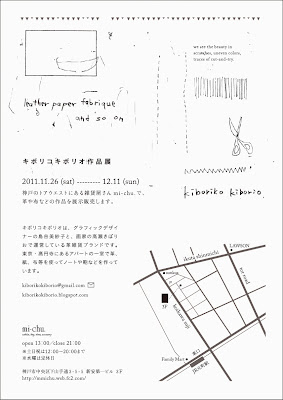 we see the beauty in
scratches, uneven colors,
traces of cut-and-try.
leather paper fabrique
and so on
kiboriko kiborio
キボリコキボリオ作品展
2011.11.26 (sat) --------- 12.11 (sun)
神戸のトアウエストにある雑貨屋さん mi-chu. で、
革や布などの作品を展示販売します。
キボリコキボリオは、グラフィックデザイ
ナーの島田美紗子と、画家の高濱きぼり
おで運営している革雑貨ブランドです。
東京・高円寺にあるアパートの一室で革、
紙、布等を使ってノートや鞄などを作って
います。
kiborikokiborio@gmail.com
kiborikokiborio.blogspot.com
mi-chu.
open 13:00/close 21:00
※土日祝は12:00~20:00まで
※水曜は定休日
神戸市中央区下山手通3-5-5 新安第一ビル 3F
http://mmichu.web.fc2.com/
LAWSON
ikuta shinmichi
tor road
3F
Family Mart
東口
JR元町駅